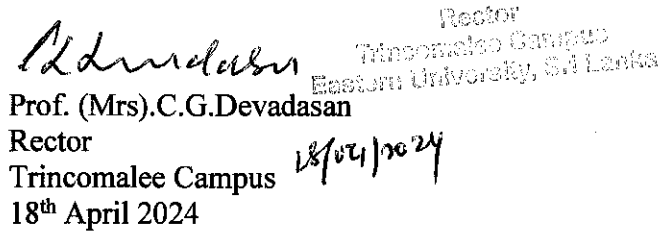 Rector
Trincomalee Campus
Eastern University, Sri Lanka
Prof. (Mrs).C.G.Devadasan
Rector
Trincomalee Campus
18/04/2024
18th April 2024